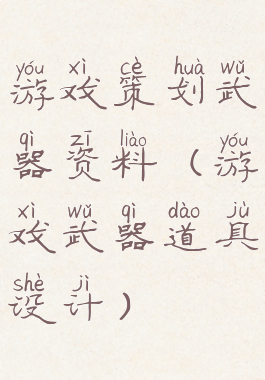 yóu xì cè huà wǔ
游戏策划武
qì zī liào yóu
器资料（游
xì wǔ qì dào jù
戏武器道具
shè jì
设计）